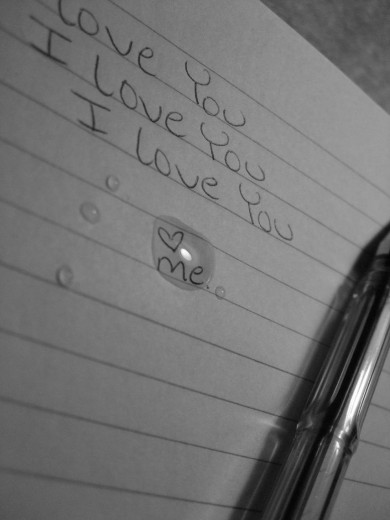 love You
I love You
I love You
♡ me.